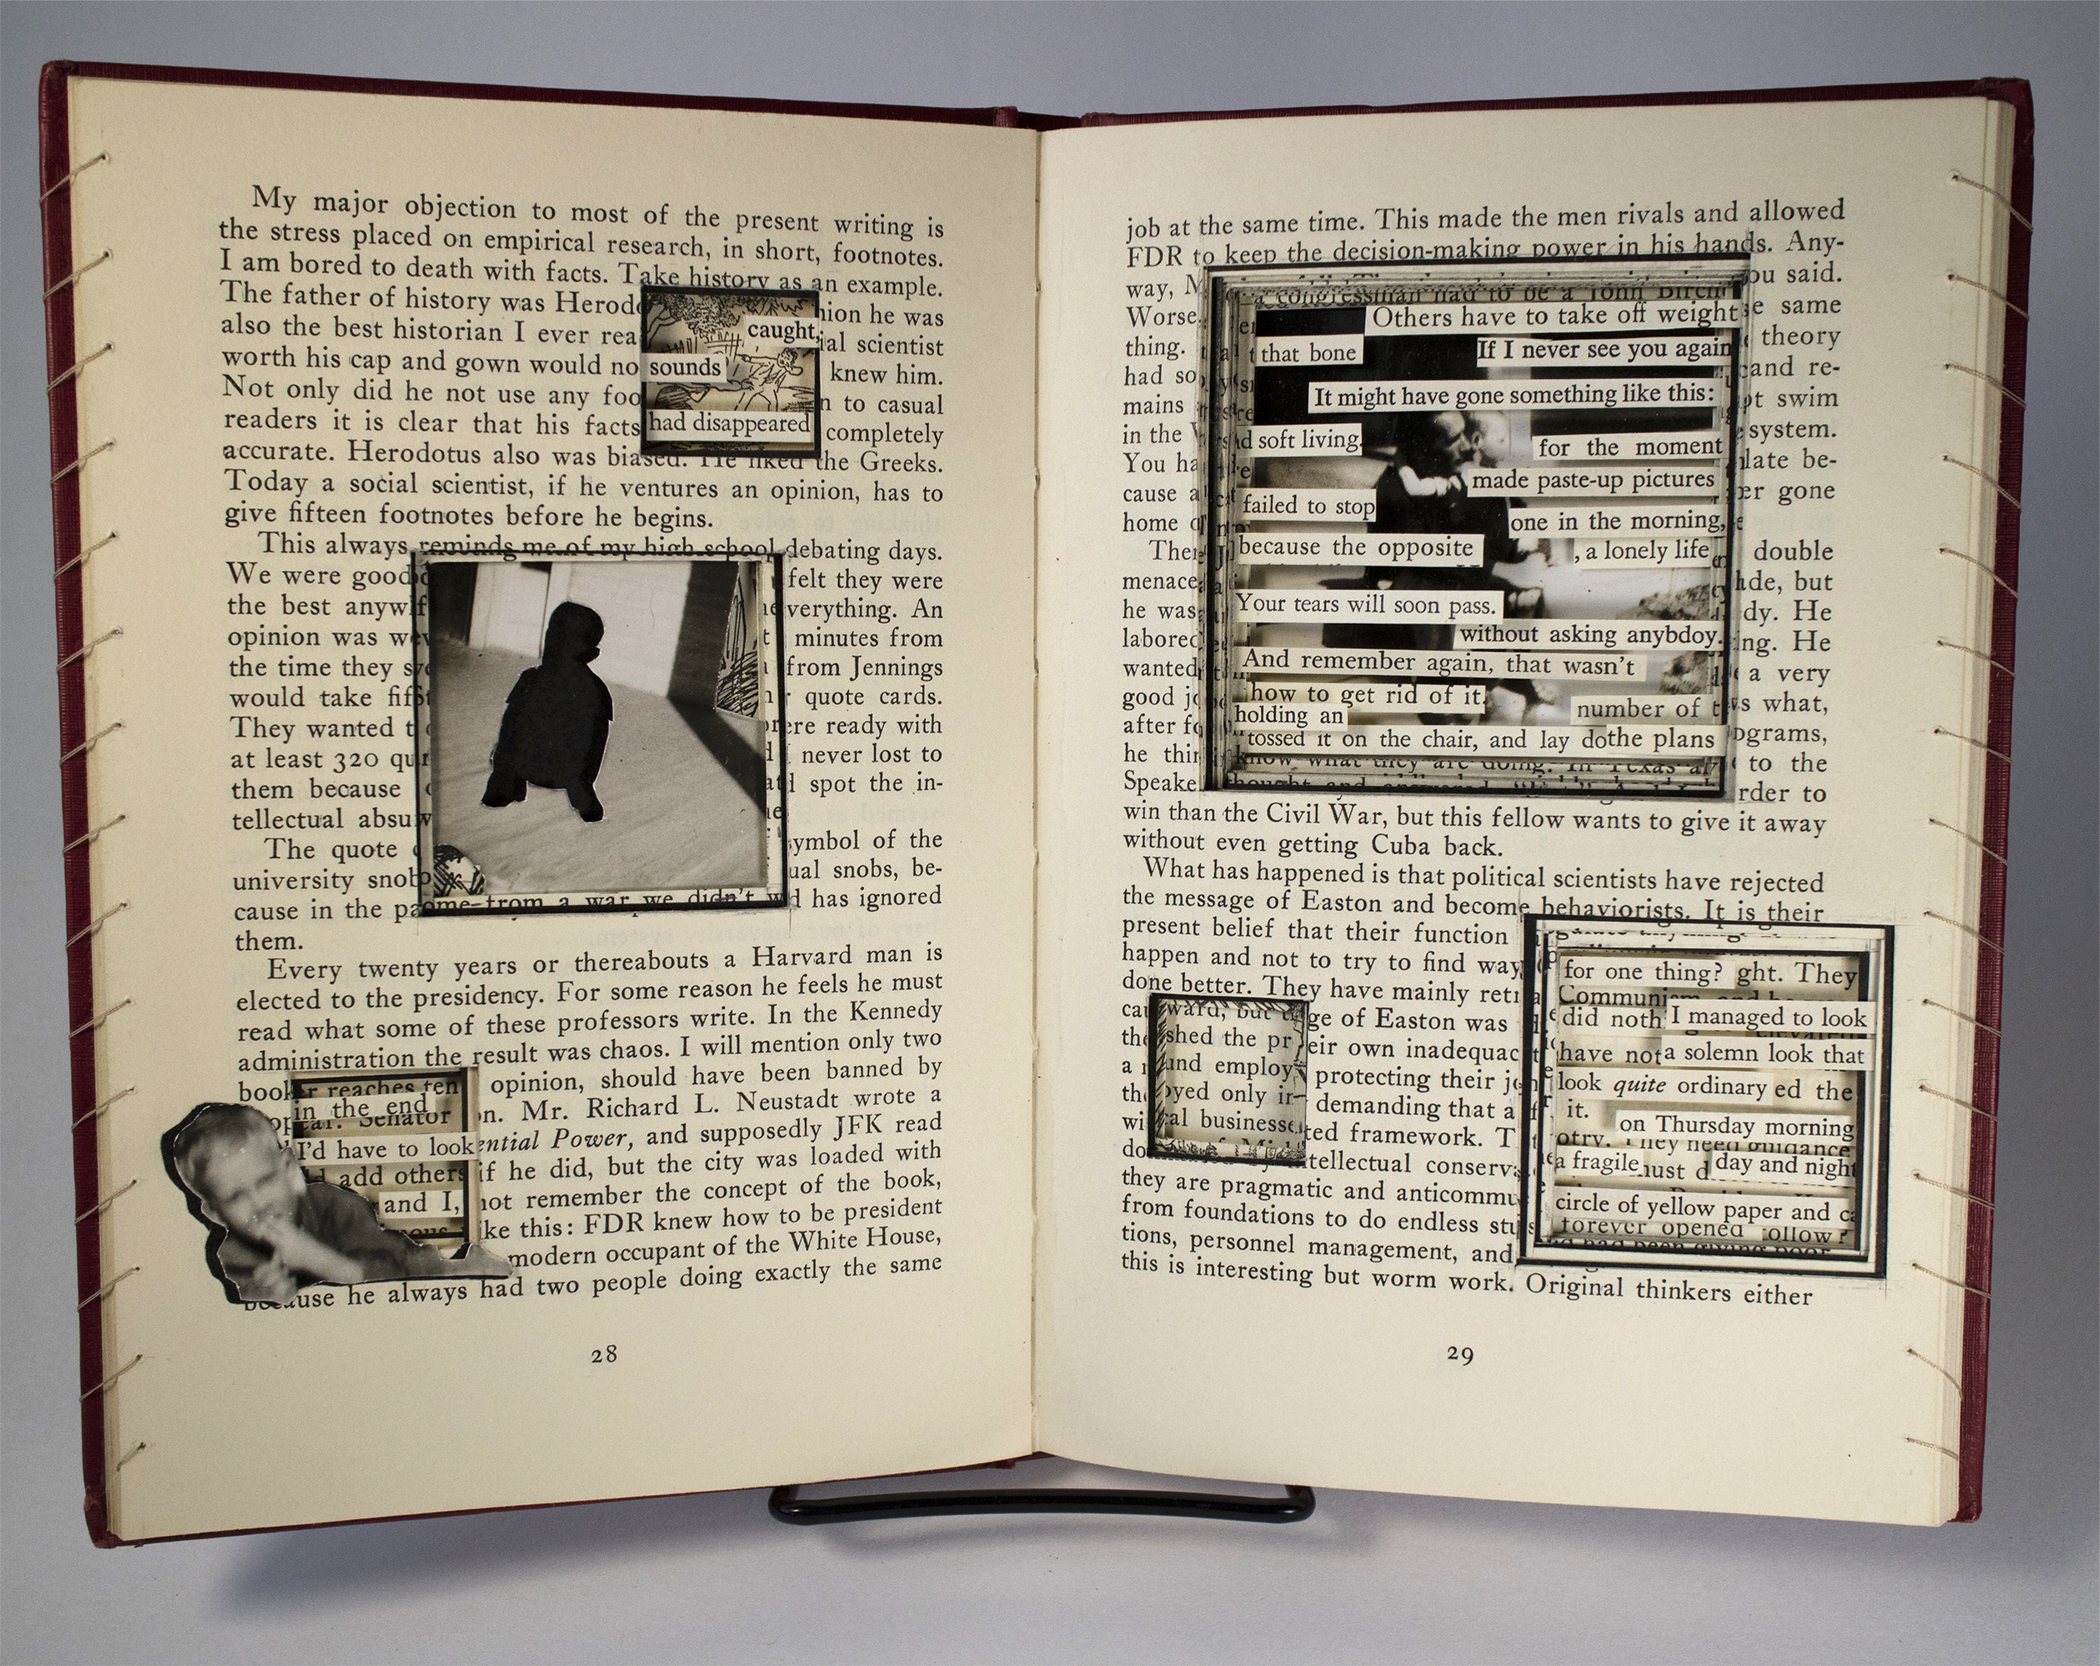 My major objection to most of the present writing is
the stress placed on empirical research, in short, footnotes.
I am bored to death with facts. Take history as an example.
The father of history was Herod
hion he was
also the best historian I ever rea
ial scientist
worth his cap and gown would no
knew him.
Not only did he not use any foo
n to casual
readers it is clear that his facts
completely
accurate. Herodotus also was biased. He liked the Greeks.
Today a social scientist, if he ventures an opinion, has to
give fifteen footnotes before he begins.
caught,
sounds
had disappeared
This always reminds me of my high school debating days.
We were good
felt they were
the best anyw
everything. An
opinion was we
minutes from
the time they s
from Jennings
would take fif
quote cards.
They wanted t
ere ready with
at least 320 qu
never lost to
them because
spot the in-
tellectual absu
The quote
symbol of the
university snob
ual snobs, be-
cause in the pa
ome from a war we didn't w
has ignored
them.
Every twenty years or thereabouts a Harvard man is
elected to the presidency. For some reason he feels he must
read what some of these professors write. In the Kennedy
administration the result was chaos. I will mention only two
book
r reaches ten
opinion, should have been banned by
in the end
op
tar. Senator
on. Mr. Richard L. Neustadt wrote a
I'd have to look
ential Power, and supposedly JFK read
d add others
if he did, but the city was loaded with
and I,
not remember the concept of the book,
ike this: FDR knew how to be president
modern occupant of the White House,
because he always had two people doing exactly the same
28
job at the same time. This made the men rivals and allowed
FDR to keep the decision-making power in his hands. Any-
way, M
ou said.
Worse
e same
thing.
theory
had so
and re-
mains
pt swim
in the
system.
You ha
late be-
cause a
er gone
home
Ther
double
menace
ide, but
he was
dy. He
labored
ing. He
wanted
a very
good jo
s what,
after fo
ograms,
he thin
to the
Speake
rder to
a congressman had to be a John Birch
Others have to take off weight
that bone
If I never see you again
It might have gone something like this:
d soft living.
for the moment
made paste-up pictures
failed to stop
one in the morning,
because the opposite
, a lonely life
Your tears will soon pass.
without asking anybdoy.
And remember again, that wasn't
how to get rid of it.
holding an
number of t
tossed it on the chair, and lay do
the plans
know what they are doing. In Texas a
thought and answered,
win than the Civil War, but this fellow wants to give it away
without even getting Cuba back.
What has happened is that political scientists have rejected
the message of Easton and become behaviorists. It is their
present belief that their function
happen and not to try to find way
done better. They have mainly reti
cau
ward, but
ge of Easton was
the
shed the pr
eir own inadequac
a
und employ
protecting their j
th
oyed only in
demanding that a
wi
al businesse
ted framework. T
do
tellectual conserv
they are pragmatic and anticommu
from foundations to do endless stu
tions, personnel management, and
this is interesting but worm work. Original thinkers either
for one thing?
ght. They
Communism
did noth
I managed to look
have not
a solemn look that
look quite ordinary
ed the
it.
on Thursday morning
otry. They need guidance
a fragile
must d
day and night
circle of yellow paper and c
forever opened
ollow?
29